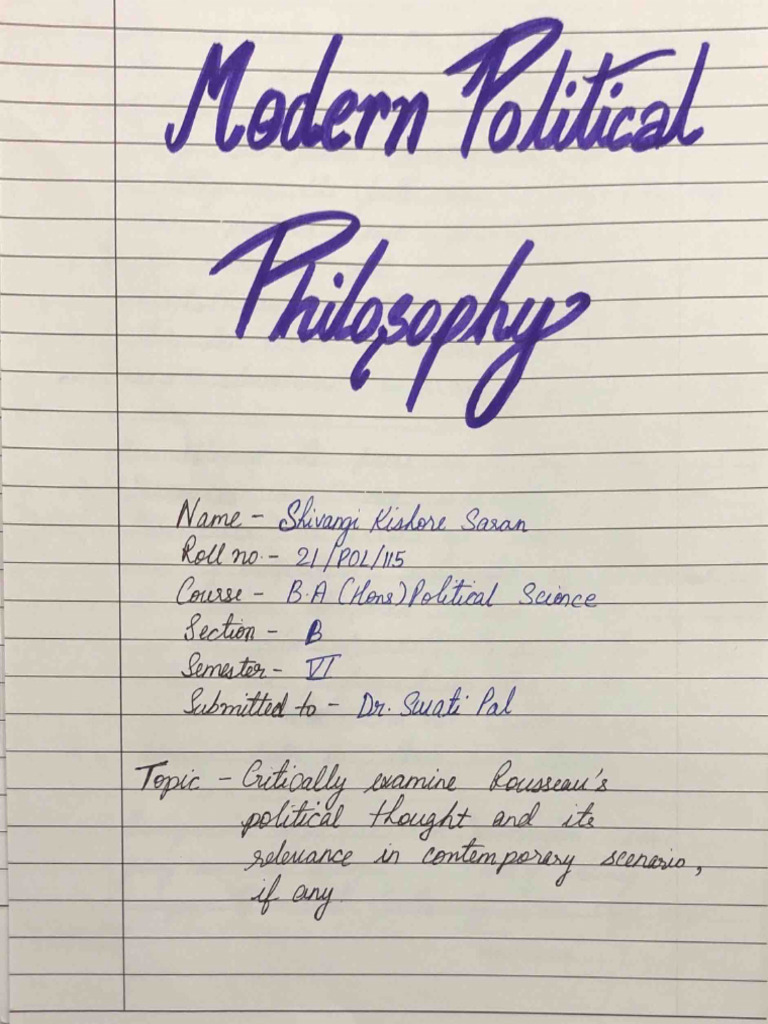 Modern Political
Philosophy
Name - Shivangi Kishore Saran
Roll no. - 21/POL/115
Course - B.A (Hons) Political Science
Section - B
Semester - VI
Submitted to - Dr. Swati Pal
Topic - Critically examine Rousseau's
political thought and its
relevance in contemporary scenario,
if any.